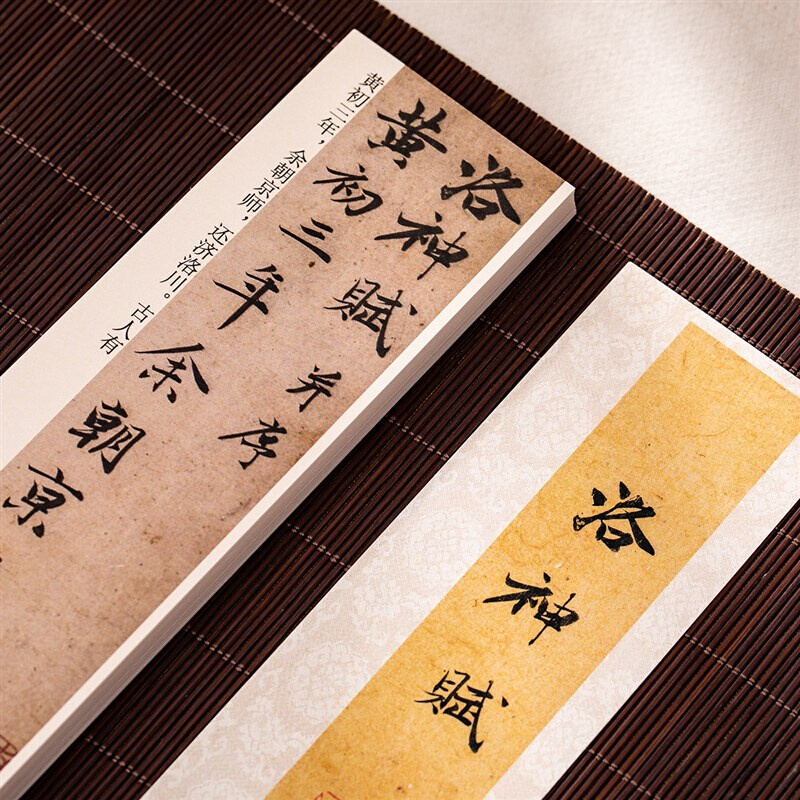 洛神賦 并序
黄初三年余朝京
黄初三年，余朝京师，还济洛川。古人有
洛神賦